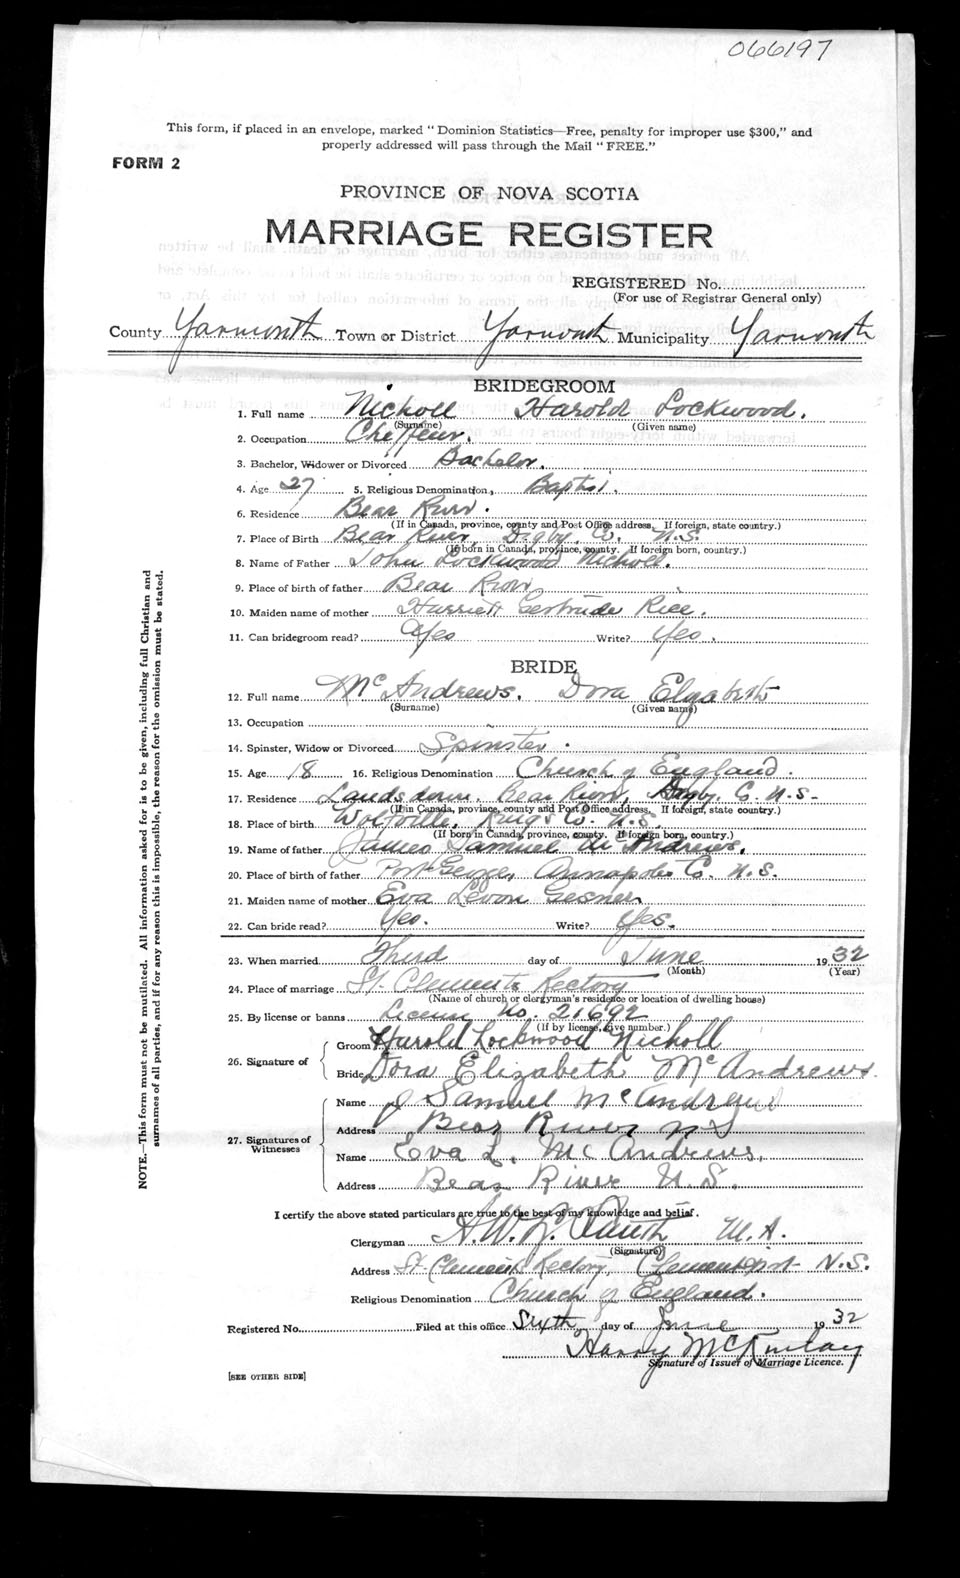 066197
This form, if placed in an envelope, marked "Dominion Statistics—Free, penalty for improper use $300," and
properly addressed will pass through the Mail "FREE."
FORM 2
PROVINCE OF NOVA SCOTIA
MARRIAGE REGISTER
REGISTERED No.
(For use of Registrar General only)
County Yarmouth Town or District Yarmouth Municipality Yarmouth
BRIDEGROOM
1. Full name Nicholl Harold Lockwood.
(Surname) (Given name)
2. Occupation Cheffeur.
3. Bachelor, Widower or Divorced Bachelor.
4. Age 27 5. Religious Denomination, Baptist.
6. Residence Bear River.
(If in Canada, province, county and Post Office address. If foreign, state country.)
7. Place of Birth Bear River, Digby Co. N.S.
(If born in Canada, province, county. If foreign born, country.)
8. Name of Father John Lockwood Nicholl.
9. Place of birth of father Bear River
10. Maiden name of mother Harriett Gertrude Rice.
11. Can bridegroom read? Yes Write? Yes.
BRIDE
12. Full name McAndrews. Dora Elizabeth
(Surname) (Given name)
13. Occupation
14. Spinster, Widow or Divorced Spinster.
15. Age 18 16. Religious Denomination Church of England.
17. Residence Landsdown, Bear River, Digby Co. N.S.
(If in Canada, province, county and Post Office address. If foreign, state country.)
18. Place of birth Wolfville, Kings Co. N.S.
(If born in Canada, province, county. If foreign born, country.)
19. Name of father James Samuel McAndrews.
20. Place of birth of father Port George, Annapolis Co. N.S.
21. Maiden name of mother Eva Levon Gesner
22. Can bride read? Yes. Write? Yes.
23. When married Third day of June 1932
(Month) (Year)
24. Place of marriage St. Clements Rectory
(Name of church or clergyman's residence or location of dwelling house)
25. By license or banns License No. 21692
(If by license, give number.)
26. Signature of
Groom Harold Lockwood Nicholl
Bride Dora Elizabeth McAndrews.
27. Signatures of Witnesses
Name J Samuel McAndrews
Address Bear River N S
Name Eva L. McAndrews,
Address Bear River N.S.
I certify the above stated particulars are true to the best of my knowledge and belief.
Clergyman A.W.L. Smith M.A.
(Signature)
Address St. Clements Rectory, Clementsport N.S.
Religious Denomination Church of England.
Registered No. Filed at this office Sixth day of June 1932
Harry McKinlay
Signature of Issuer of Marriage Licence.
[SEE OTHER SIDE]
NOTE.—This form must not be mutilated. All information asked for is to be given, including full Christian and
surnames of all parties, and if for any reason this is impossible, the reason for the omission must be stated.